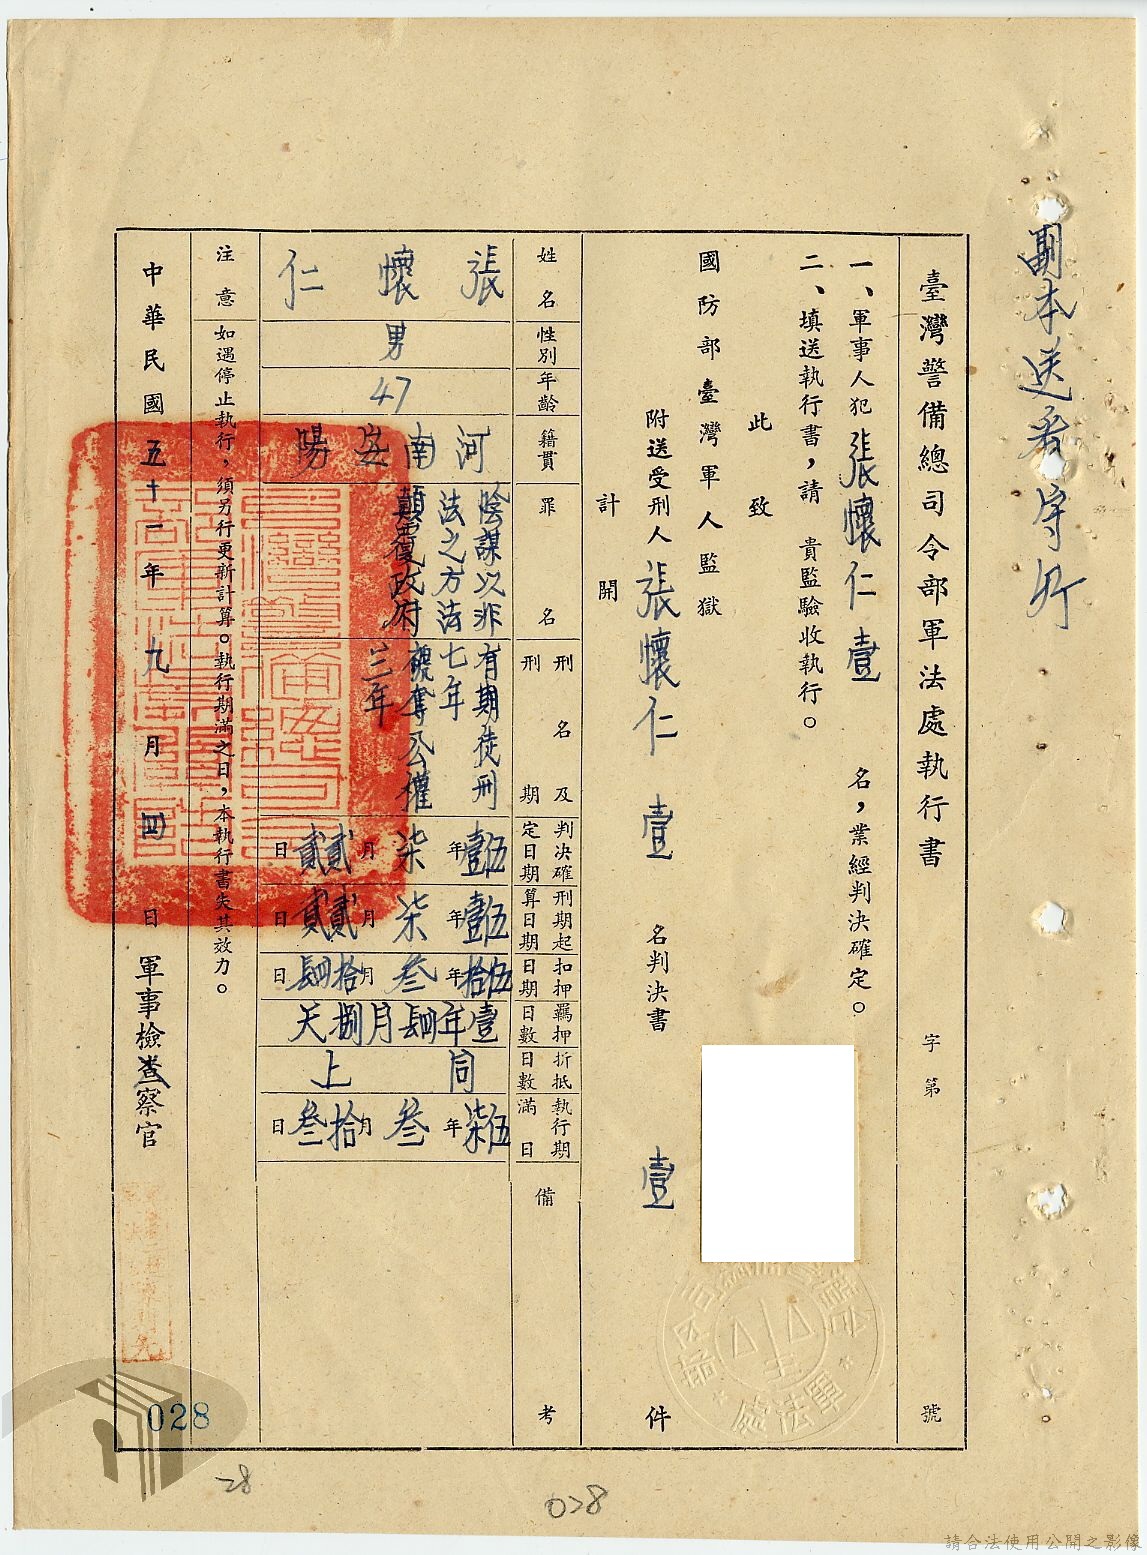 副本送看守所
臺灣警備總司令部軍法處執行書 字第 號
一、軍事人犯張懷仁壹 名，業經判決確定。
二、填送執行書，請 貴監驗收執行。
此致
國防部臺灣軍人監獄
附送受刑人張懷仁壹 名判決書 壹 件
計開
姓名 張懷仁
性別 男
年齡 47
籍貫 河南安陽
罪名 陰謀以非法之方法顛覆政府
刑名及刑期 有期徒刑七年褫奪公權三年
判決確定日期 伍壹年柒月貳貳日
刑期起算日期 伍壹年柒月貳貳日
扣押日期 伍拾年叁月拾肆日
羈押日數 壹年肆月捌天
折抵日數 同上
執行期滿日 伍柒年叁月拾叁日
備考
注意 如遇停止執行，須另行更新計算。執行期滿之日，本執行書失其放力。
中華民國五十一年九月四日 軍事檢察官
028
28
028
請合法使用公開之影像